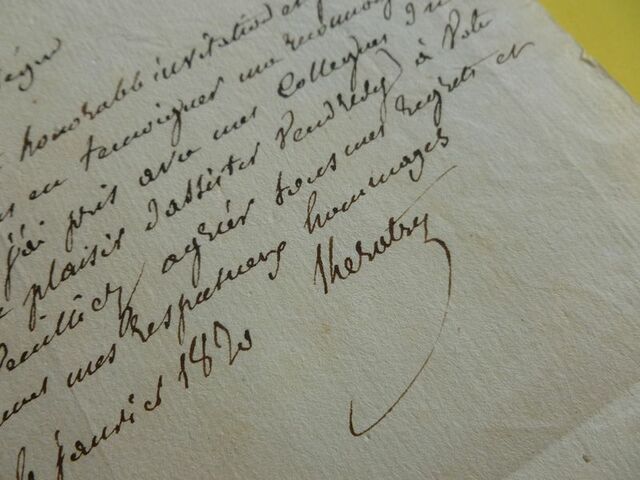 Ségur
honorable invitation et
en temoigner ma reconnois
j'ai pris avec mes Collegues d'un
plaisir d'assister Vendredy à Votre
Veuillez agréer tous mes regrets et
mes respectueux hommages
janvier 1820 Kératry